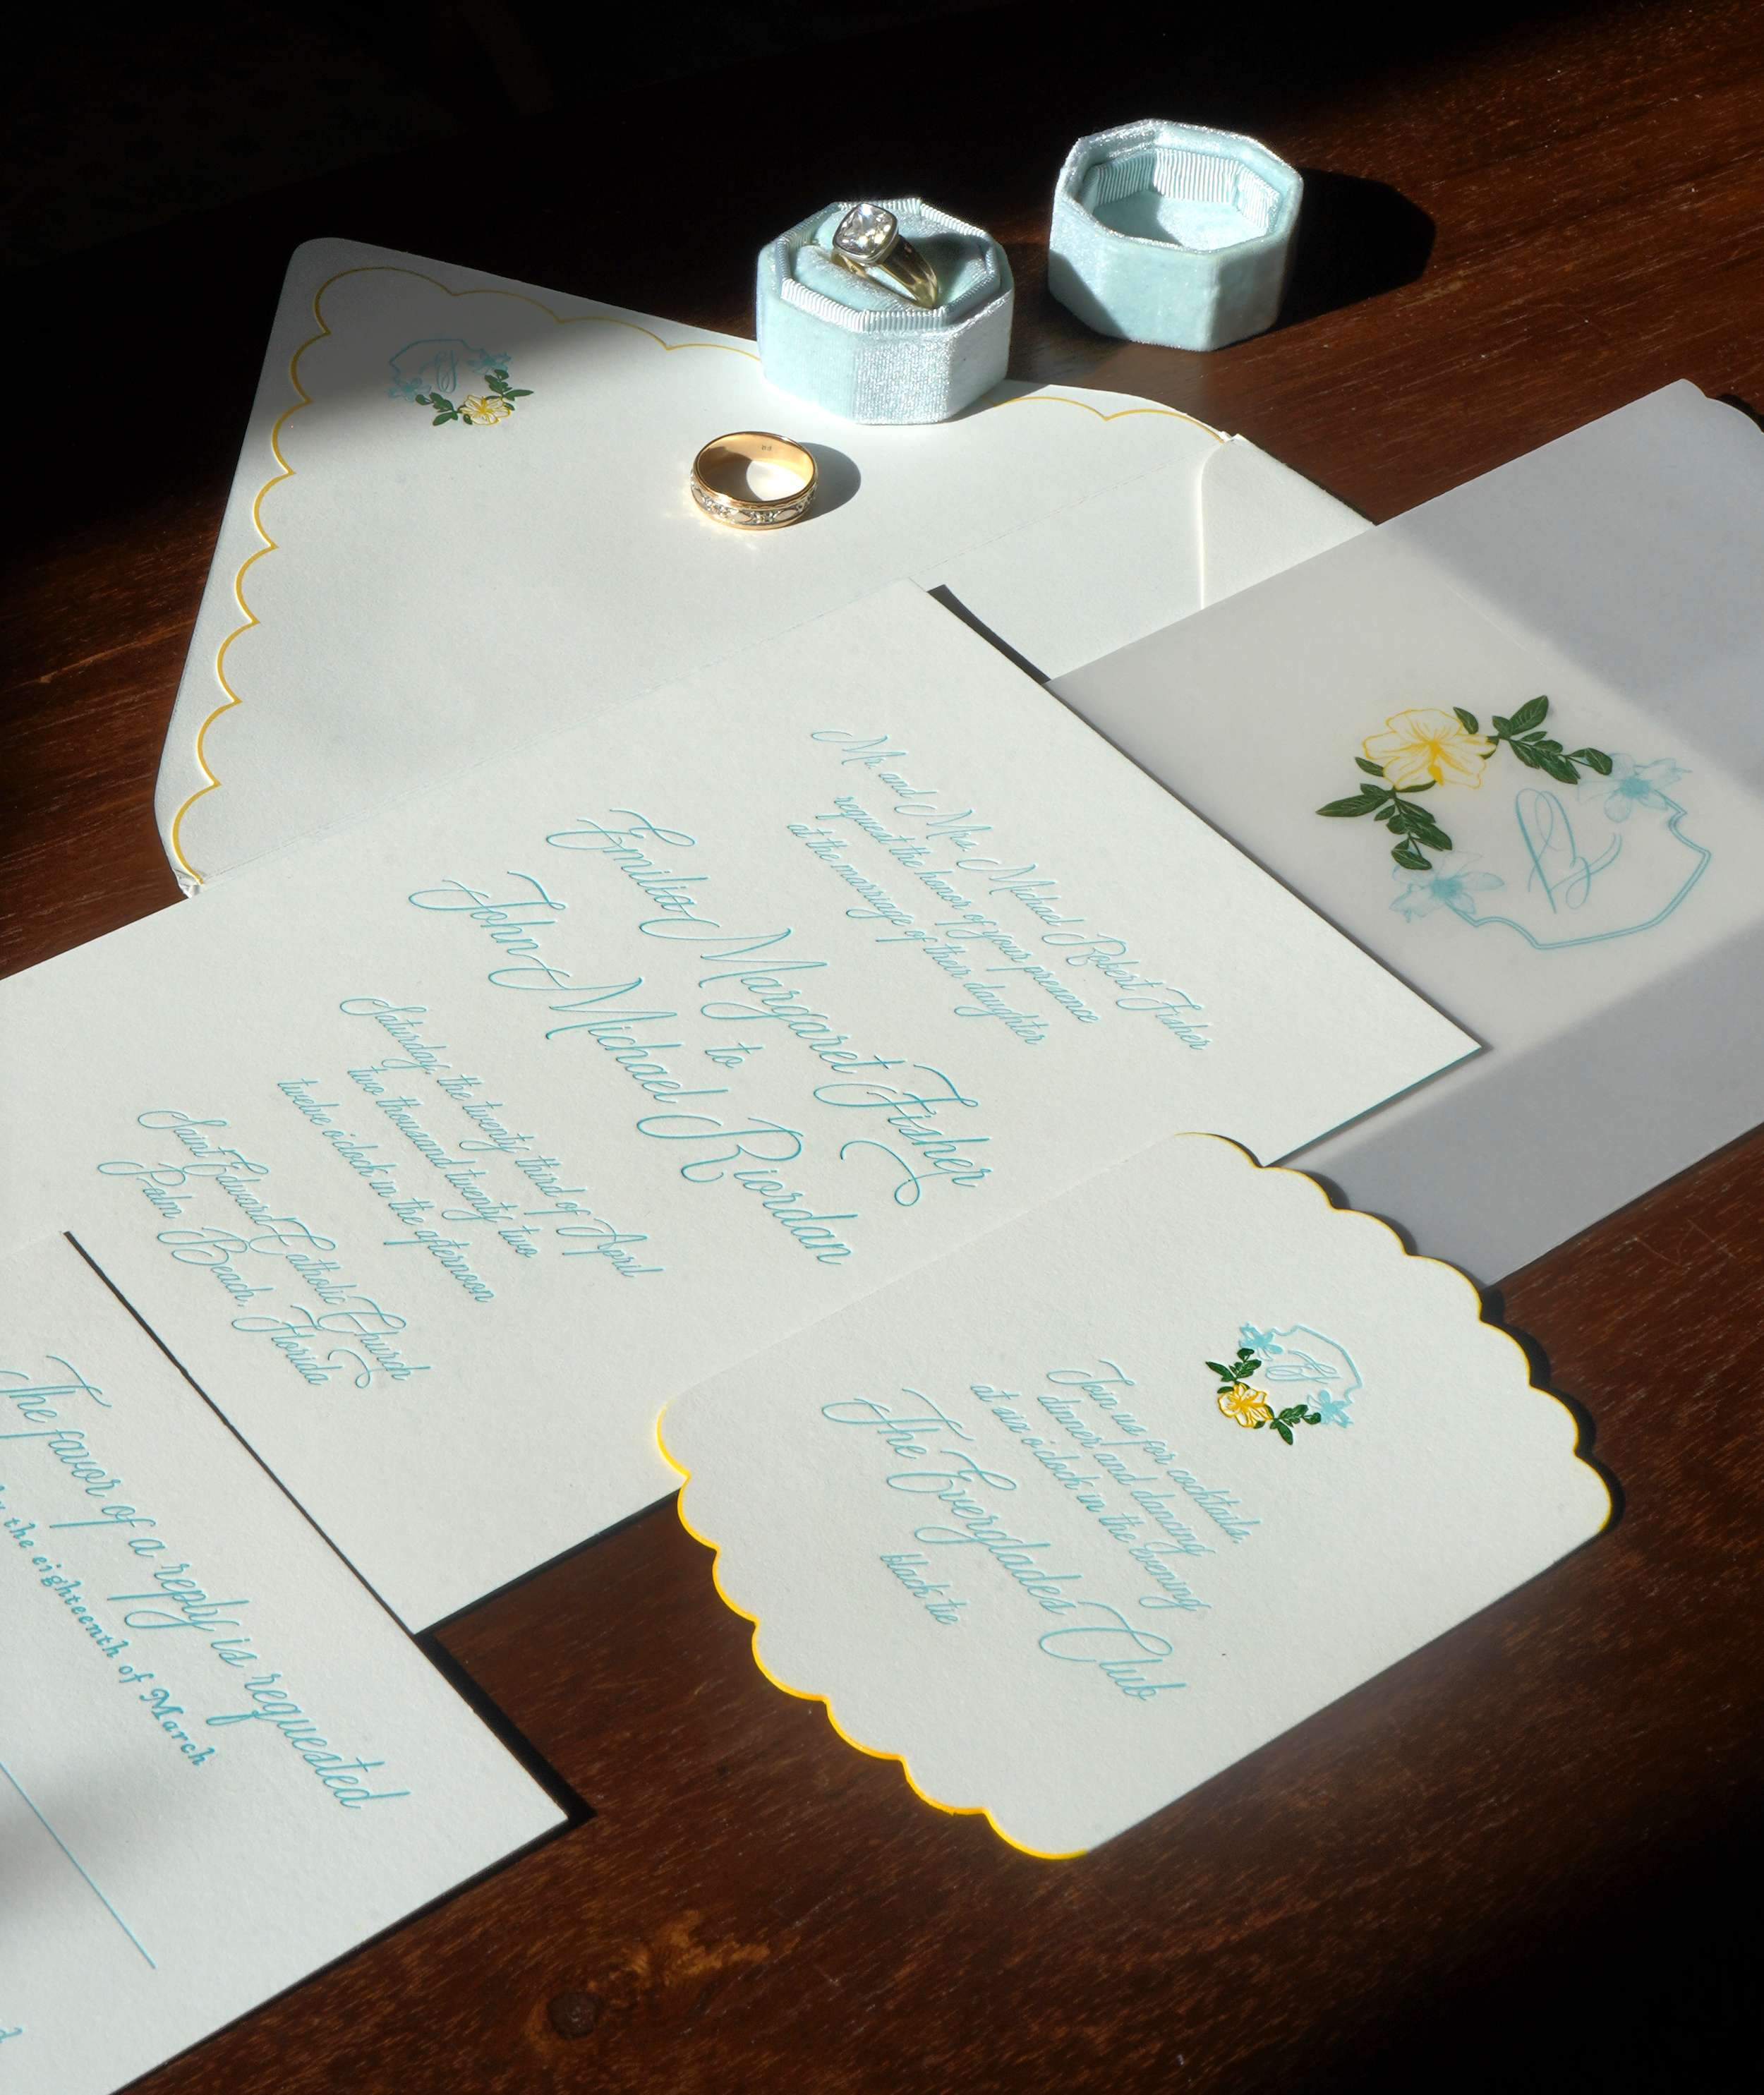 Mr. and Mrs. Michael Robert Fisher
request the honor of your presence
at the marriage of their daughter
Emilia Margaret Fisher
to
John Michael Riordan
Saturday, the twenty third of April
two thousand twenty two
twelve o'clock in the afternoon
Saint Edward Catholic Church
Palm Beach, Florida
Join us for cocktails,
dinner and dancing
at six o'clock in the evening
The Everglades Club
black tie
The favor of a reply is requested
the eighteenth of March